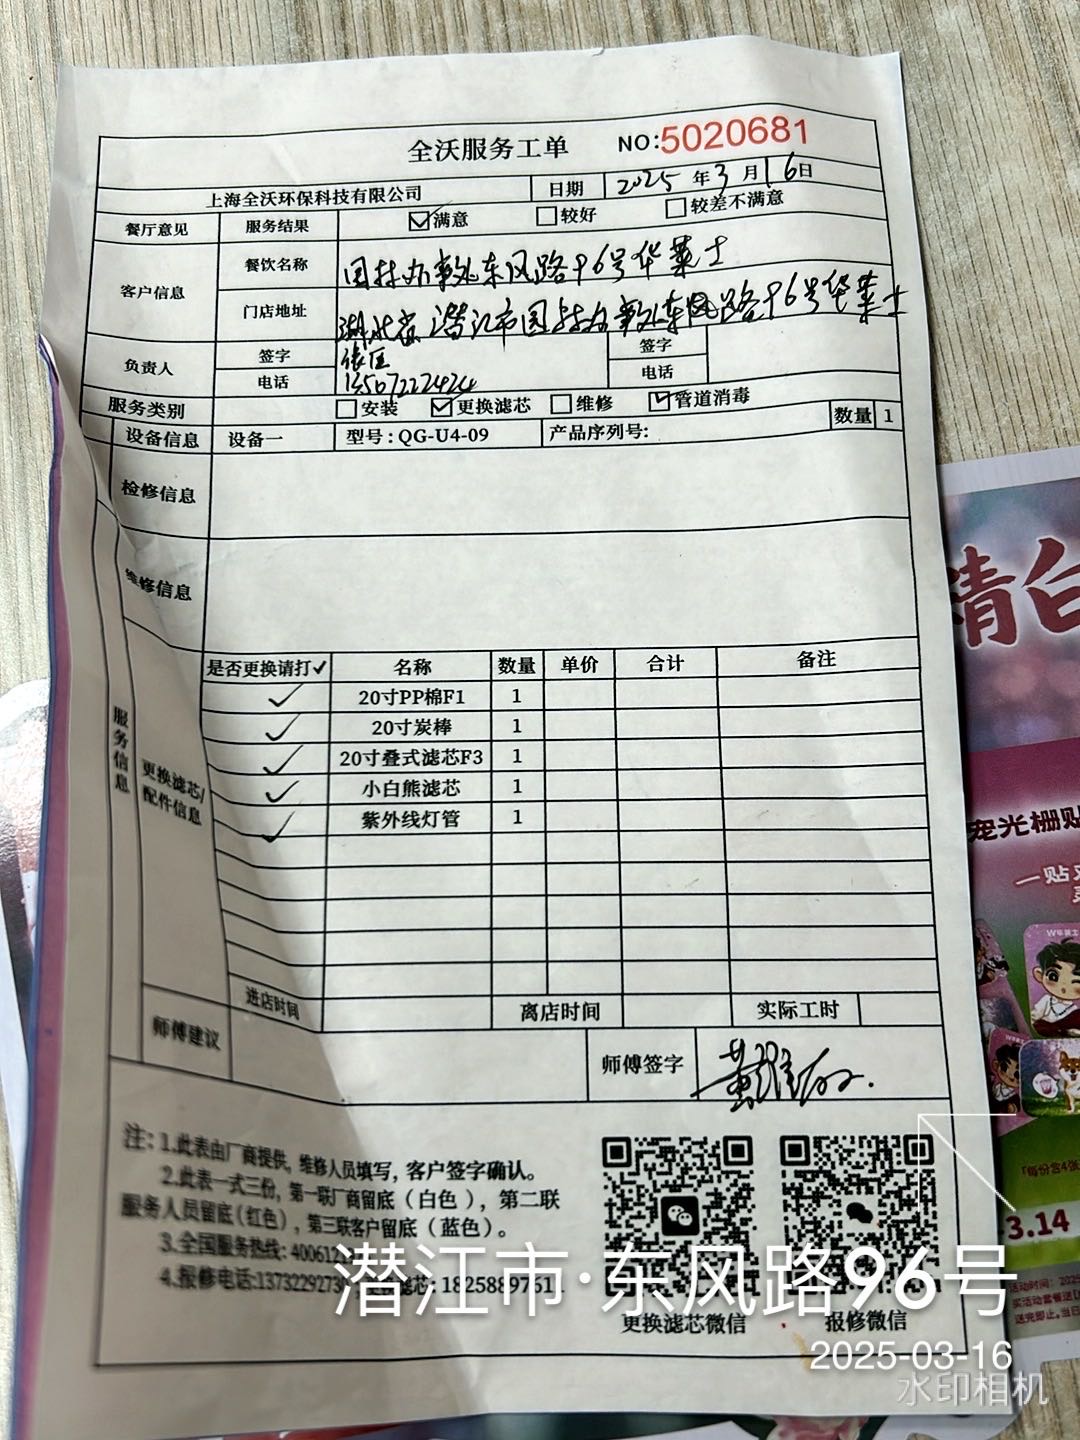 全沃服务工单 NO:5020681
上海全沃环保科技有限公司 日期 2025年3月16日
餐厅意见 服务结果 ☑满意 □较好 □较差不满意
客户信息 餐饮名称 园林办事处东风路96号华莱士
门店地址 湖北省潜江市园林办事处东风路96号华莱士
负责人 签字 签字
电话 13507222424 电话
服务类别 □安装 ☑更换滤芯 □维修 ☑管道消毒
设备信息 设备一 型号:QG-U4-09 产品序列号: 数量 1
检修信息
维修信息
服务信息
更换滤芯/配件信息
是否更换请打✓ 名称 数量 单价 合计 备注
✓ 20寸PP棉F1 1
✓ 20寸炭棒 1
✓ 20寸叠式滤芯F3 1
✓ 小白熊滤芯 1
✓ 紫外线灯管 1
进店时间 离店时间 实际工时
师傅建议 师傅签字
注:1.此表由厂商提供,维修人员填写,客户签字确认。
2.此表一式三份,第一联厂商留底(白色),第二联
服务人员留底(红色),第三联客户留底(蓝色)。
3.全国服务热线:
4.报修电话: 更换滤芯:
更换滤芯微信 报修微信
潜江市·东风路96号
2025-03-16
水印相机
清白
宠光栅贴
一贴
W华莱士
3.14
活动时间: